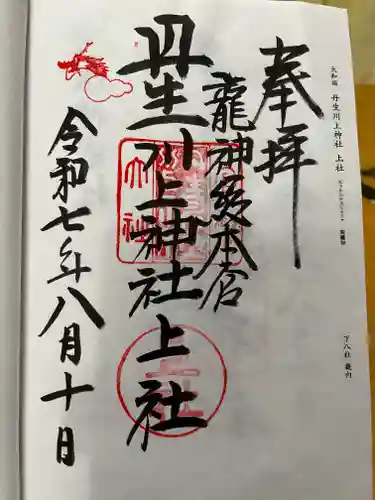 大和國 丹生川上神社 上社
丁八社 畿内
奉拝
龍神総本宮
丹生川上神社上社
令和七年八月十日